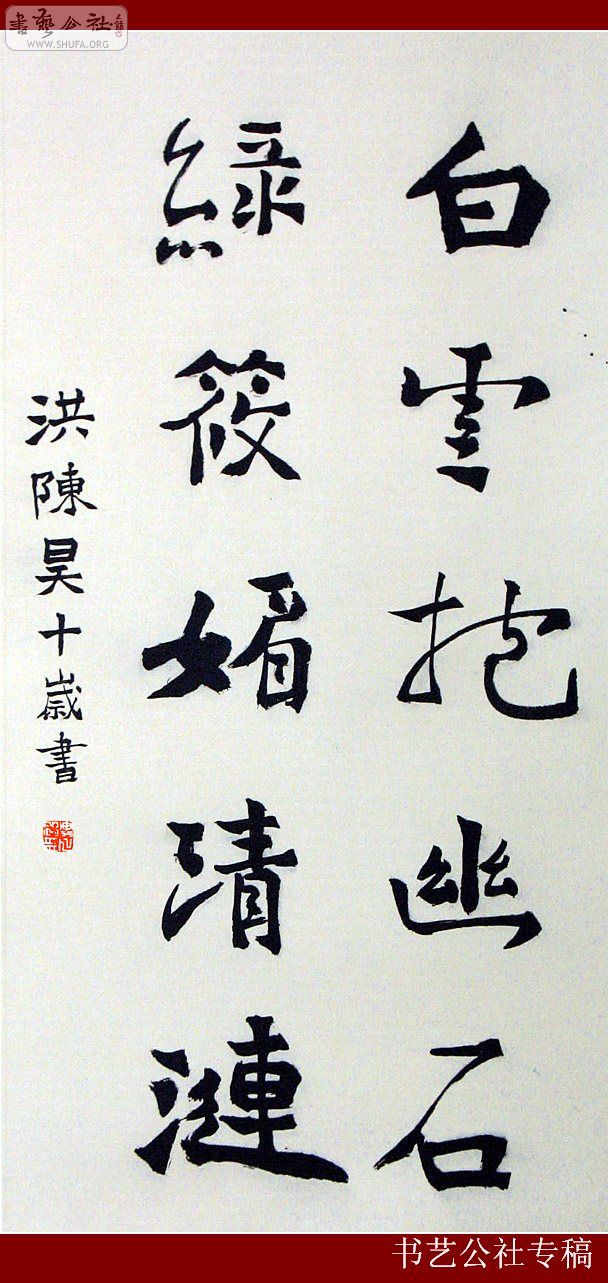 書藝公社
WWW.SHUFA.ORG
白雲抱幽石
綠筱媚清漣
洪陳昊十歲書
书艺公社专稿